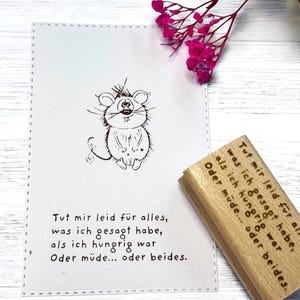 Tut mir leid für alles,
was ich gesagt habe,
als ich hungrig war
Oder müde... oder beides.
Tut mir leid für alles,
was ich gesagt habe,
als ich hungrig war
Oder müde... oder beides.